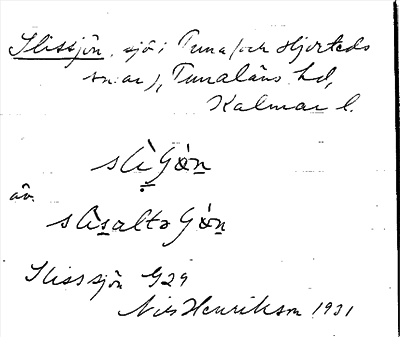 Slissjön, sjö i Tuna (och Hjorteds
sn:ar), Tunaläns hd,
Kalmar l.
slìGȯn
äv.
slisaltəGȯn
Slissjön G29
Nils Henrikson 1931